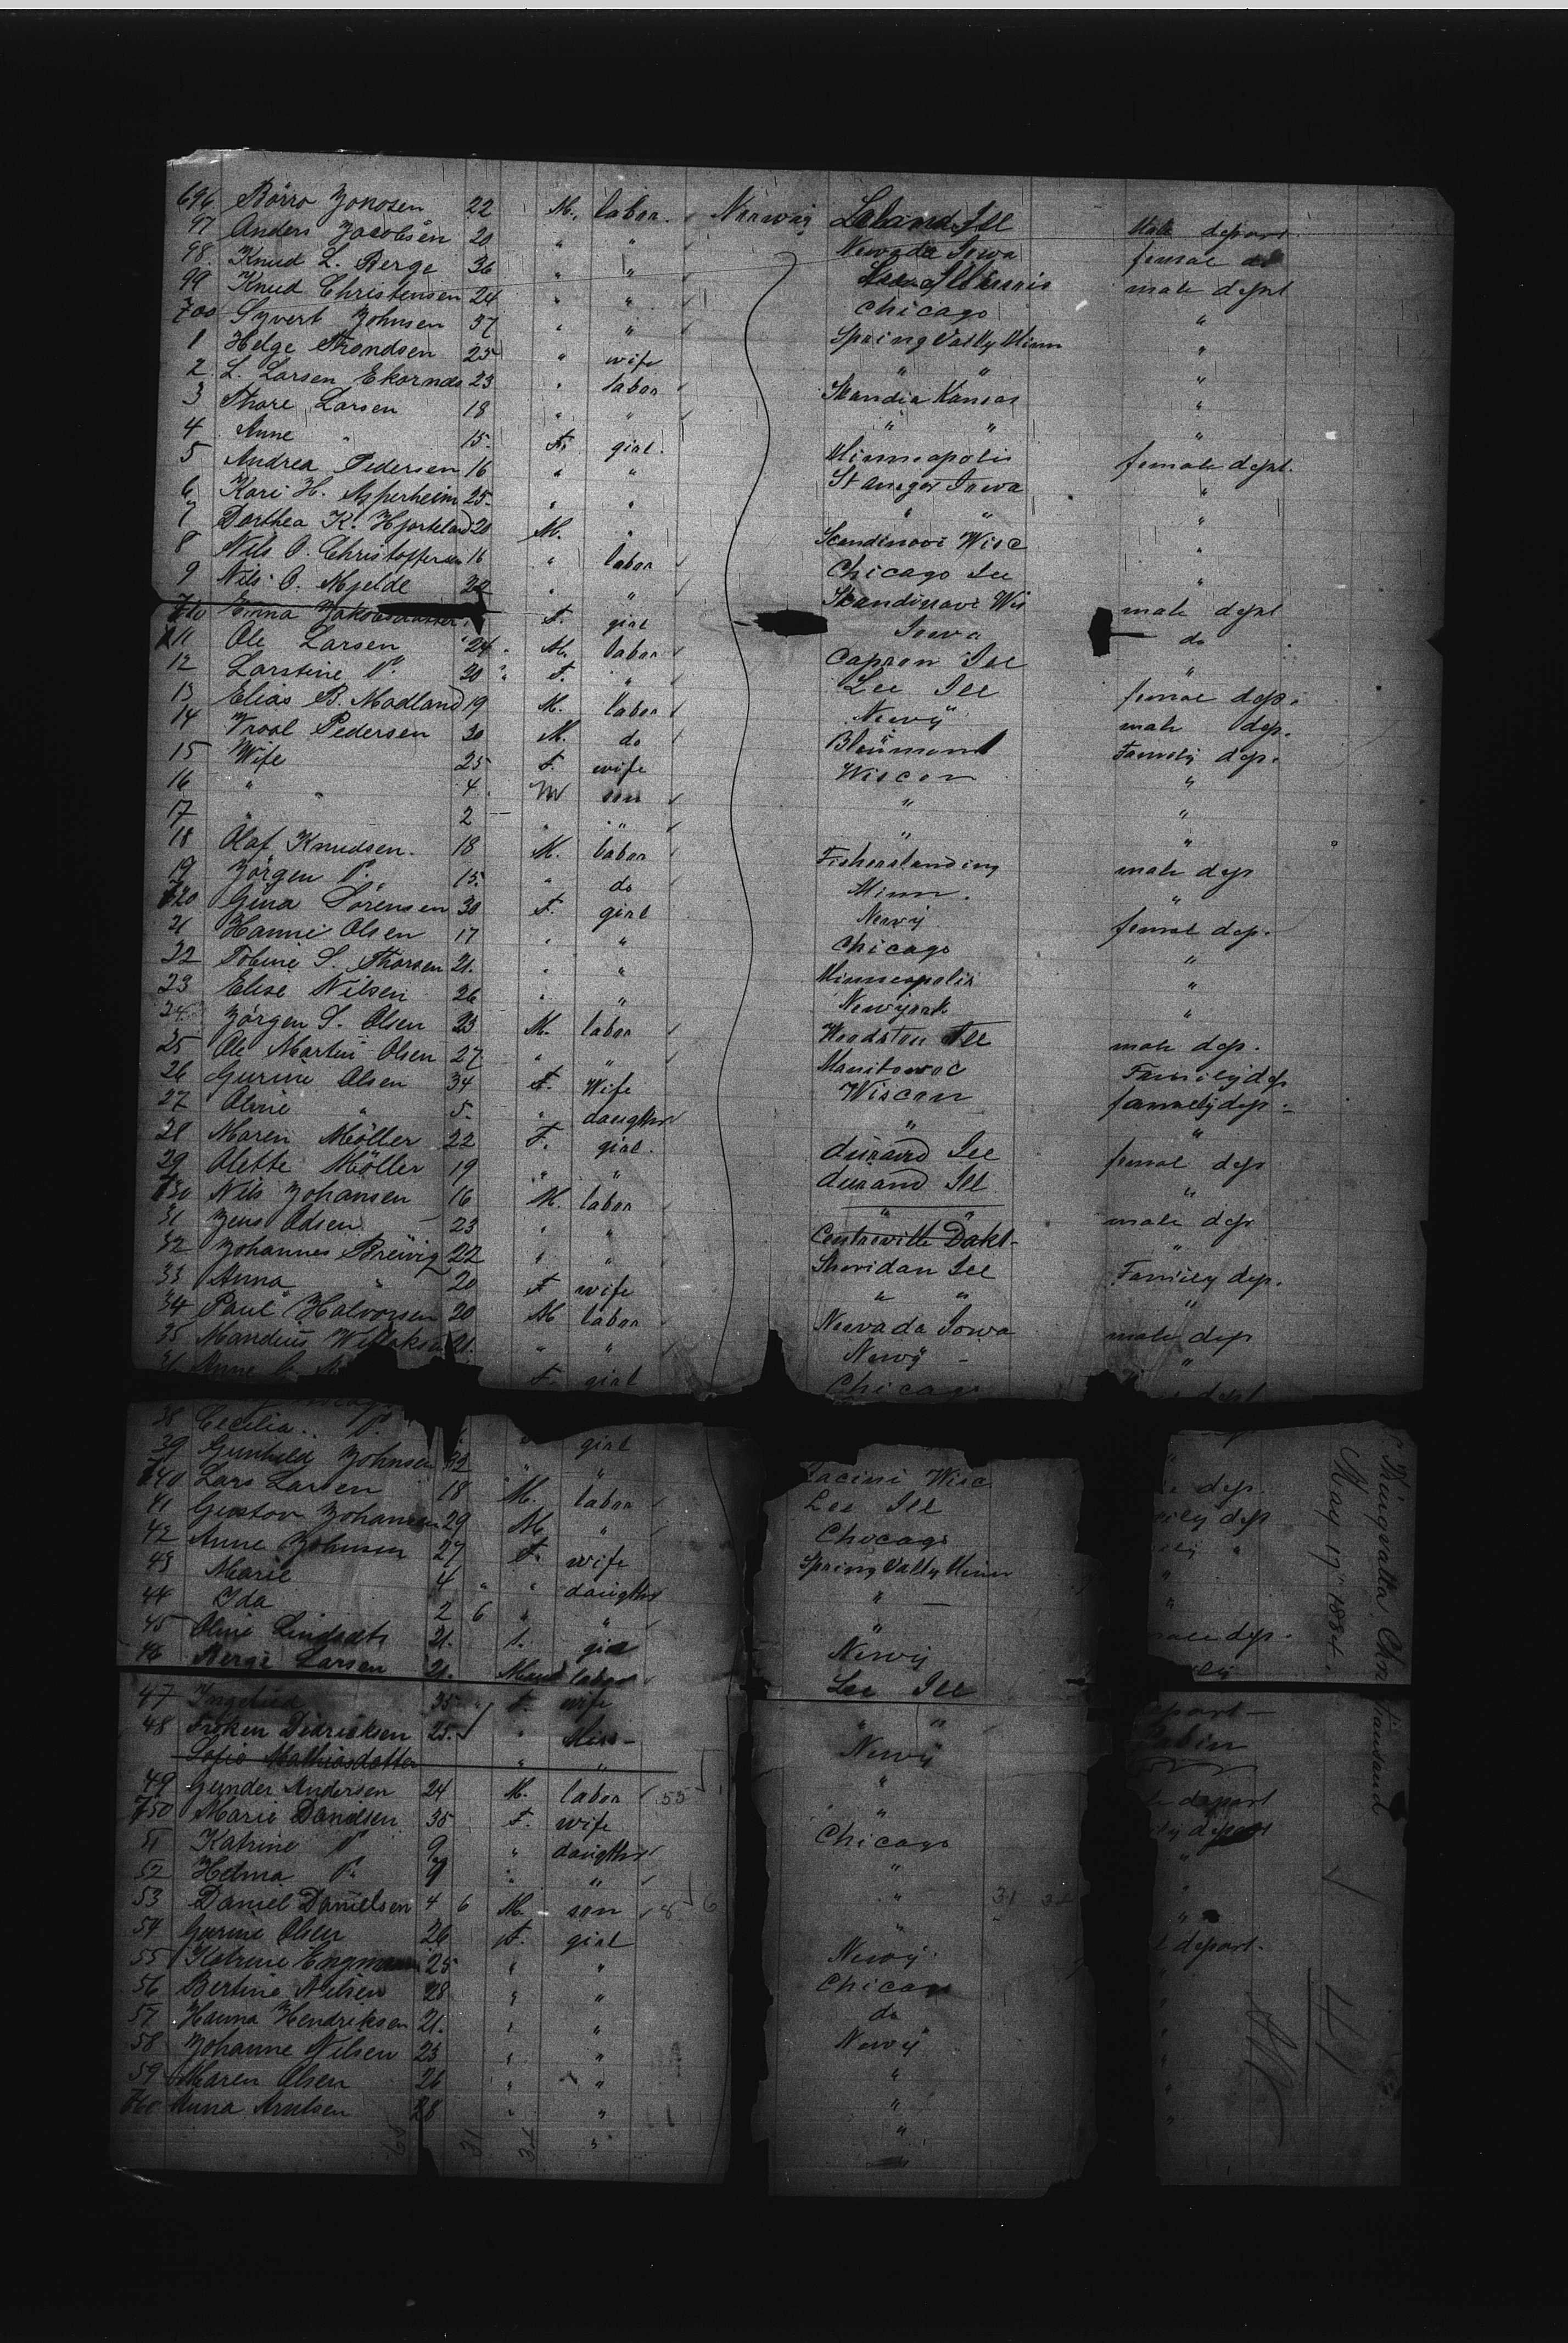 696 Börro Jonosen 22 M. labor Norway Leland Ill
97 Anders Jacobsen 20 " " Newada Iowa Male depart.
98. Knud L. Berge 36 " " Lee Illinois female do
99 Knud Christensen 24 " " Chicago male dept
700 Syvert Johnsen 37 " " Spring Vally Minn "
1 Helge Trondsen 25 " wife " " "
2. L. Larsen Ekornds 23 " labor Skandia Kansas "
3 Thore Larsen 18 " " " " "
4 Anne " 15. F. girl. Minneapolis "
5 Andrea Pedersen 16 " " female dept.
6 Kari H. Asperheim 25. " " " " "
7 Dorthea K. Hjorteland 20 M. " Scandinavi Wisc "
8 Nils O. Christoffersen 16 " labor Chicago Ill "
9 Nils O. Mjelde 22 " " Skandinavi Wis "
710 Emna Jakobsdatter F. girl Iowa male dept
711 Ole Larsen 24. M. labor Capron Ill do
12 Larstine Do. 20 " F. " Lee Ill "
13 Elias B. Modland 19 M. labor Newÿ female dep.
14 Troal Pedersen 30 M. do male dep.
15 Wife 25 F. wife Wiscon Family dep.
16 " " 4. M son " "
17 " 2 " " " "
18 Olaf Knudsen. 18 M. labor Fisherslanding "
19 Jörgen Do. 15. " do Minn. male dep
720 Gina Sörensen 30 F. girl Newÿ "
21 Hanne Olsen 17 " " Chicago female dep.
22 Tobine S. Thorsen 21. " " Minneapolis "
23 Elise Nilsen 26 " " Newyork "
24 Jörgen S. Olsen 23 M. labor Woodston Ill "
25 Ole Martin Olsen 27 " " Manitowoc male dep.
26 Gurine Olsen 34 F. Wife Wiscon Family dep
27 Oline " 5. " daughter " family dep.
28 Maren Möller 22 F. girl. durand Ill "
29 Olette Möller 19 " " durand Ill female dep
730 Nils Johansen 16 M. labor " " "
31 Jens Odsen 23 " " Centreville Dakt- male dep
32 Johannes Breivig 22 " " Sheridan Ill "
33 Anna " 20 F wife " " Family dep.
34 Paul Halvorsen 20 M labor Newada Iowa "
35 Mandius 21. " " Newÿ - male dep
Anne F. girl Chicago "
38 Cecilia.. Do. girl
39 Gunhild Johnsen 32 " " Wisc "
740 Lars Larsen 18 M. labor Lee Ill dep.
41 Gustav Johansen 29 M. " Chocago dep
42 Anne Johnsen 27 F. wife Spring Vally Minn "
43 Marie 4 " " daughter " - "
44 Ida 2 6 " " " "
45 Oline 21. F. girl Newÿ dep.
46 Berge Larsen 21. labor Lee Ill
47 Ingebid 35 " F. wife " "
48 Fröken Dedricksen 25. " Miss- Newÿ
Sofie Mathiasdatter " " "
49 Gunder Andersen 24 M. labor 55 " depart
750 Marie Danilsen 35 F. wife Chicago depart
51 Katrine Do 9 " daughter " "
52 Helma Do. 7 " " " "
53 Daniel Danielsen 4 6 M. son 8 6 " 31 "
54 Gurine Olsen 26 F. girl Newÿ depart.
55 Katrine Engman 25 " " Chicago
56 Bertine Nilsen 28 " " do
57 Hanna Hendriksen 21. " " Newÿ
58 Johanne Nilsen 23 " " "
59 Maren Olsen 26 " " "
760 Anna Arntsen 28 " " "
31 "
Kingsalta. Christiansand
May 17 1884.